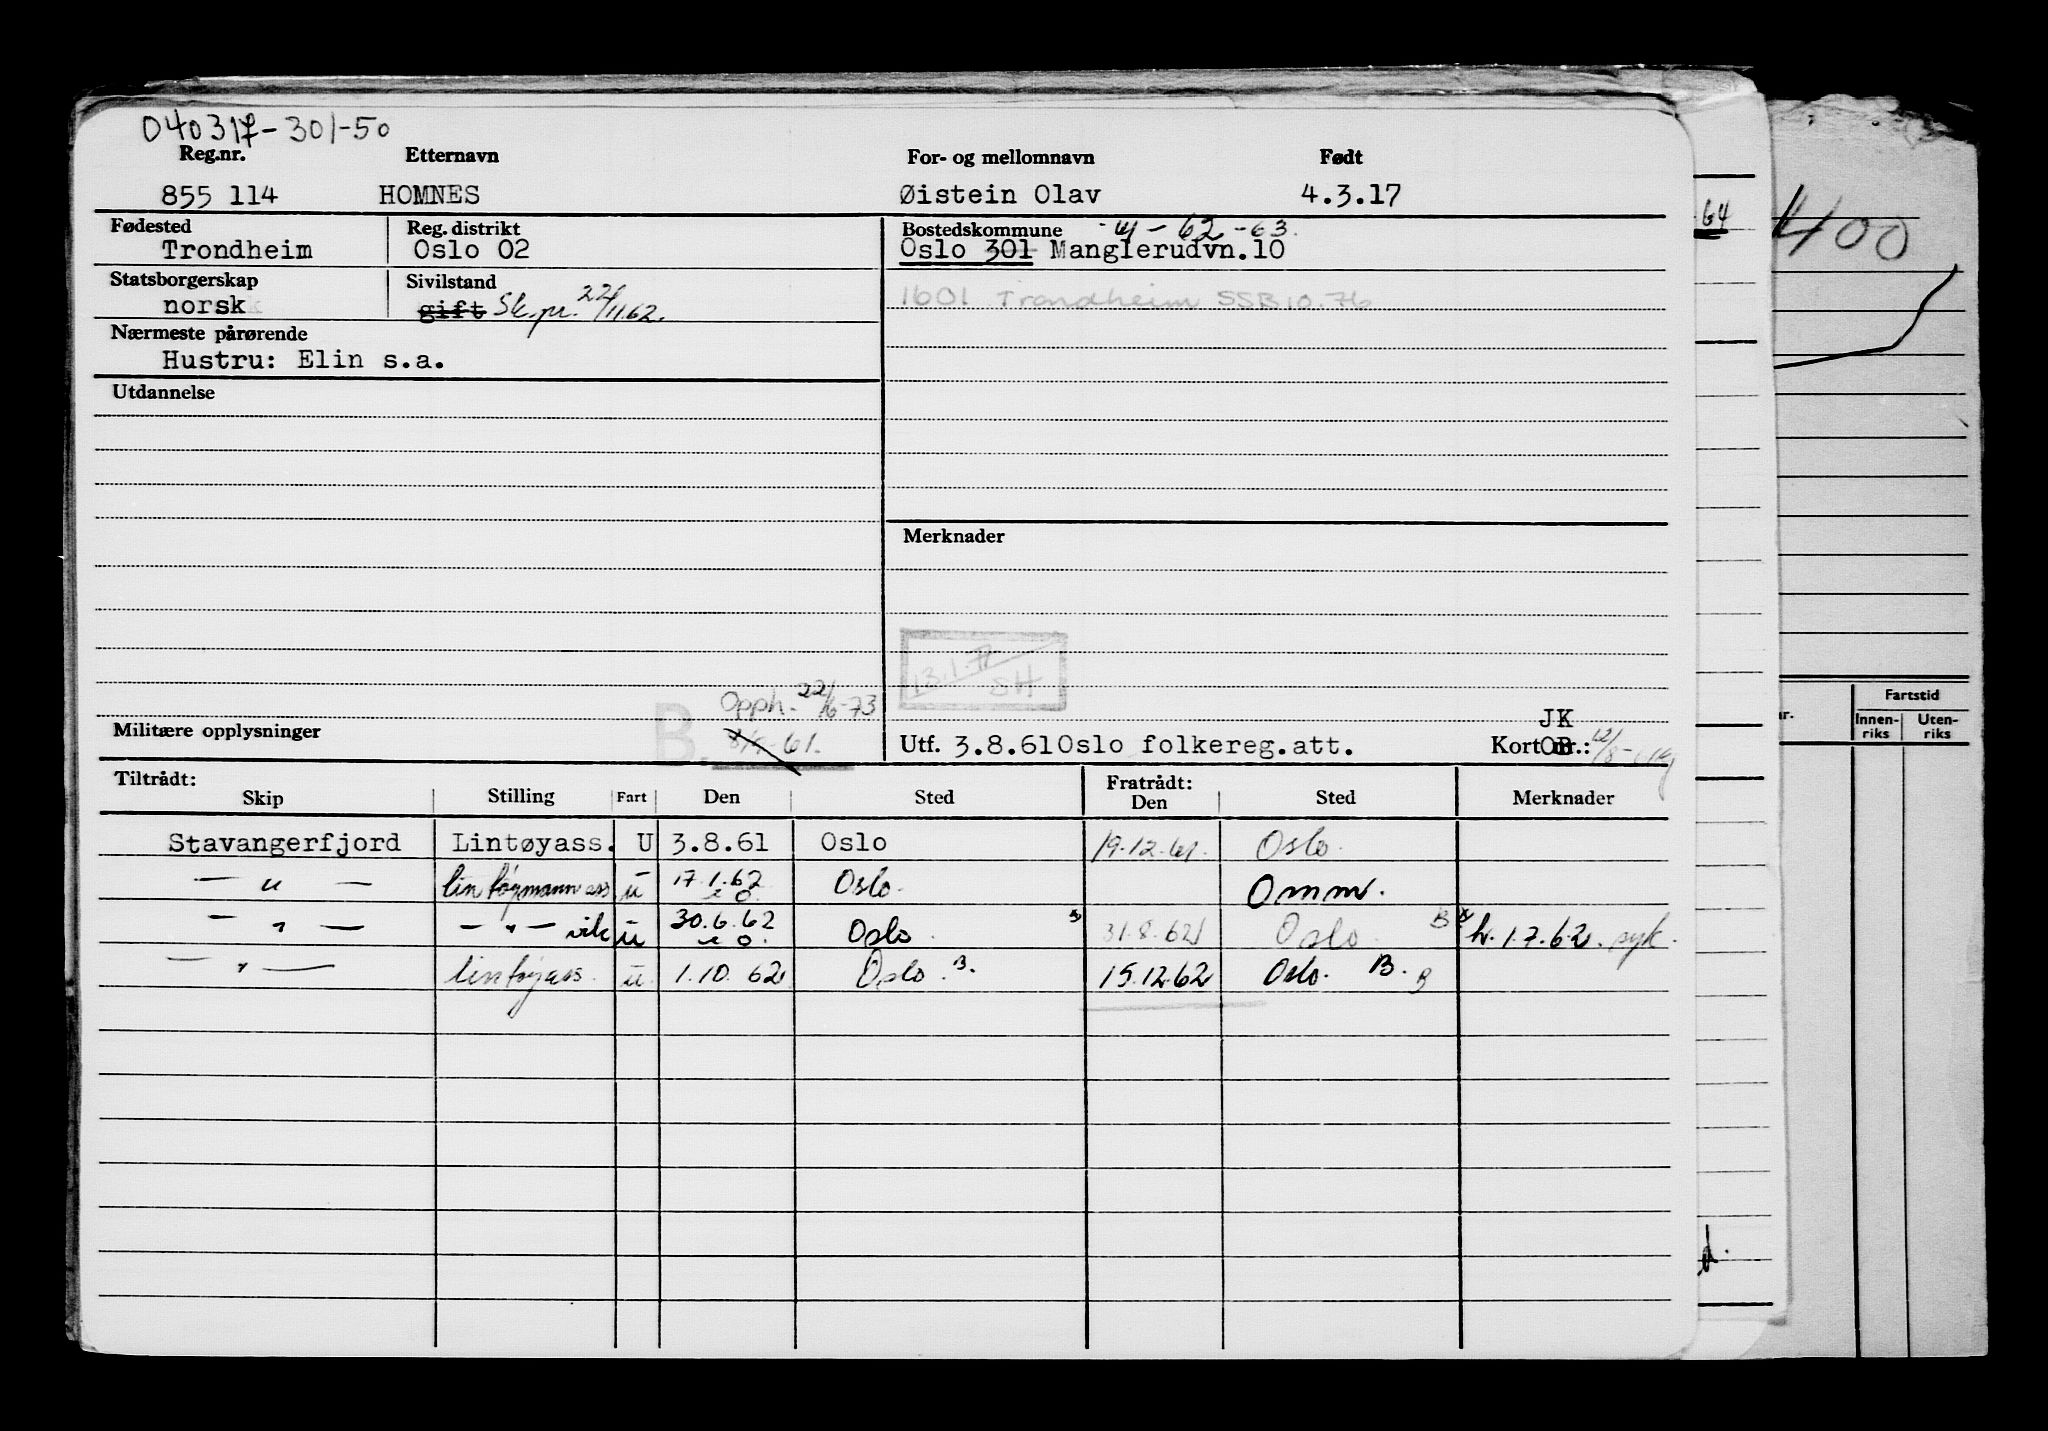 040317-301-50
Reg.nr. Etternavn For- og mellomnavn Født
855 114 HOMNES Øistein Olav 4.3.17
Fødested Reg. distrikt Bostedskommune - 61 - 62 - 63.
Trondheim Oslo 02 Oslo 301 Manglerudvn.10
Statsborgerskap Sivilstand
norsk gift 1601 Trondheim SSB 10.76
Nærmeste pårørende
Hustru: Elin s.a.
Utdannelse
Merknader
13.1.77
SH
Opph. 22/6-73
Militære opplysninger B. JK
Utf. 3.8.61 Oslo folkereg.att. Kort nr.: OB
Tiltrådt: Fratrådt:
Skip Stilling Fart Den Sted Den Sted Merknader
Stavangerfjord Lintøyass. U 3.8.61 Oslo 19.12.61. Oslo.
— " — lintøymann ass u 17.1.62 Oslo. Omm.
— " — — " — vik u 30.6.62 Oslo. 31.8.62 Oslo. B x h. 1.7.62. syk.
— " — lintøyass. u. 1.10.62 Oslo. B. 15.12.62 Oslo. B. B
64
400
Fartstid
Innen-riks Uten-riks
d.